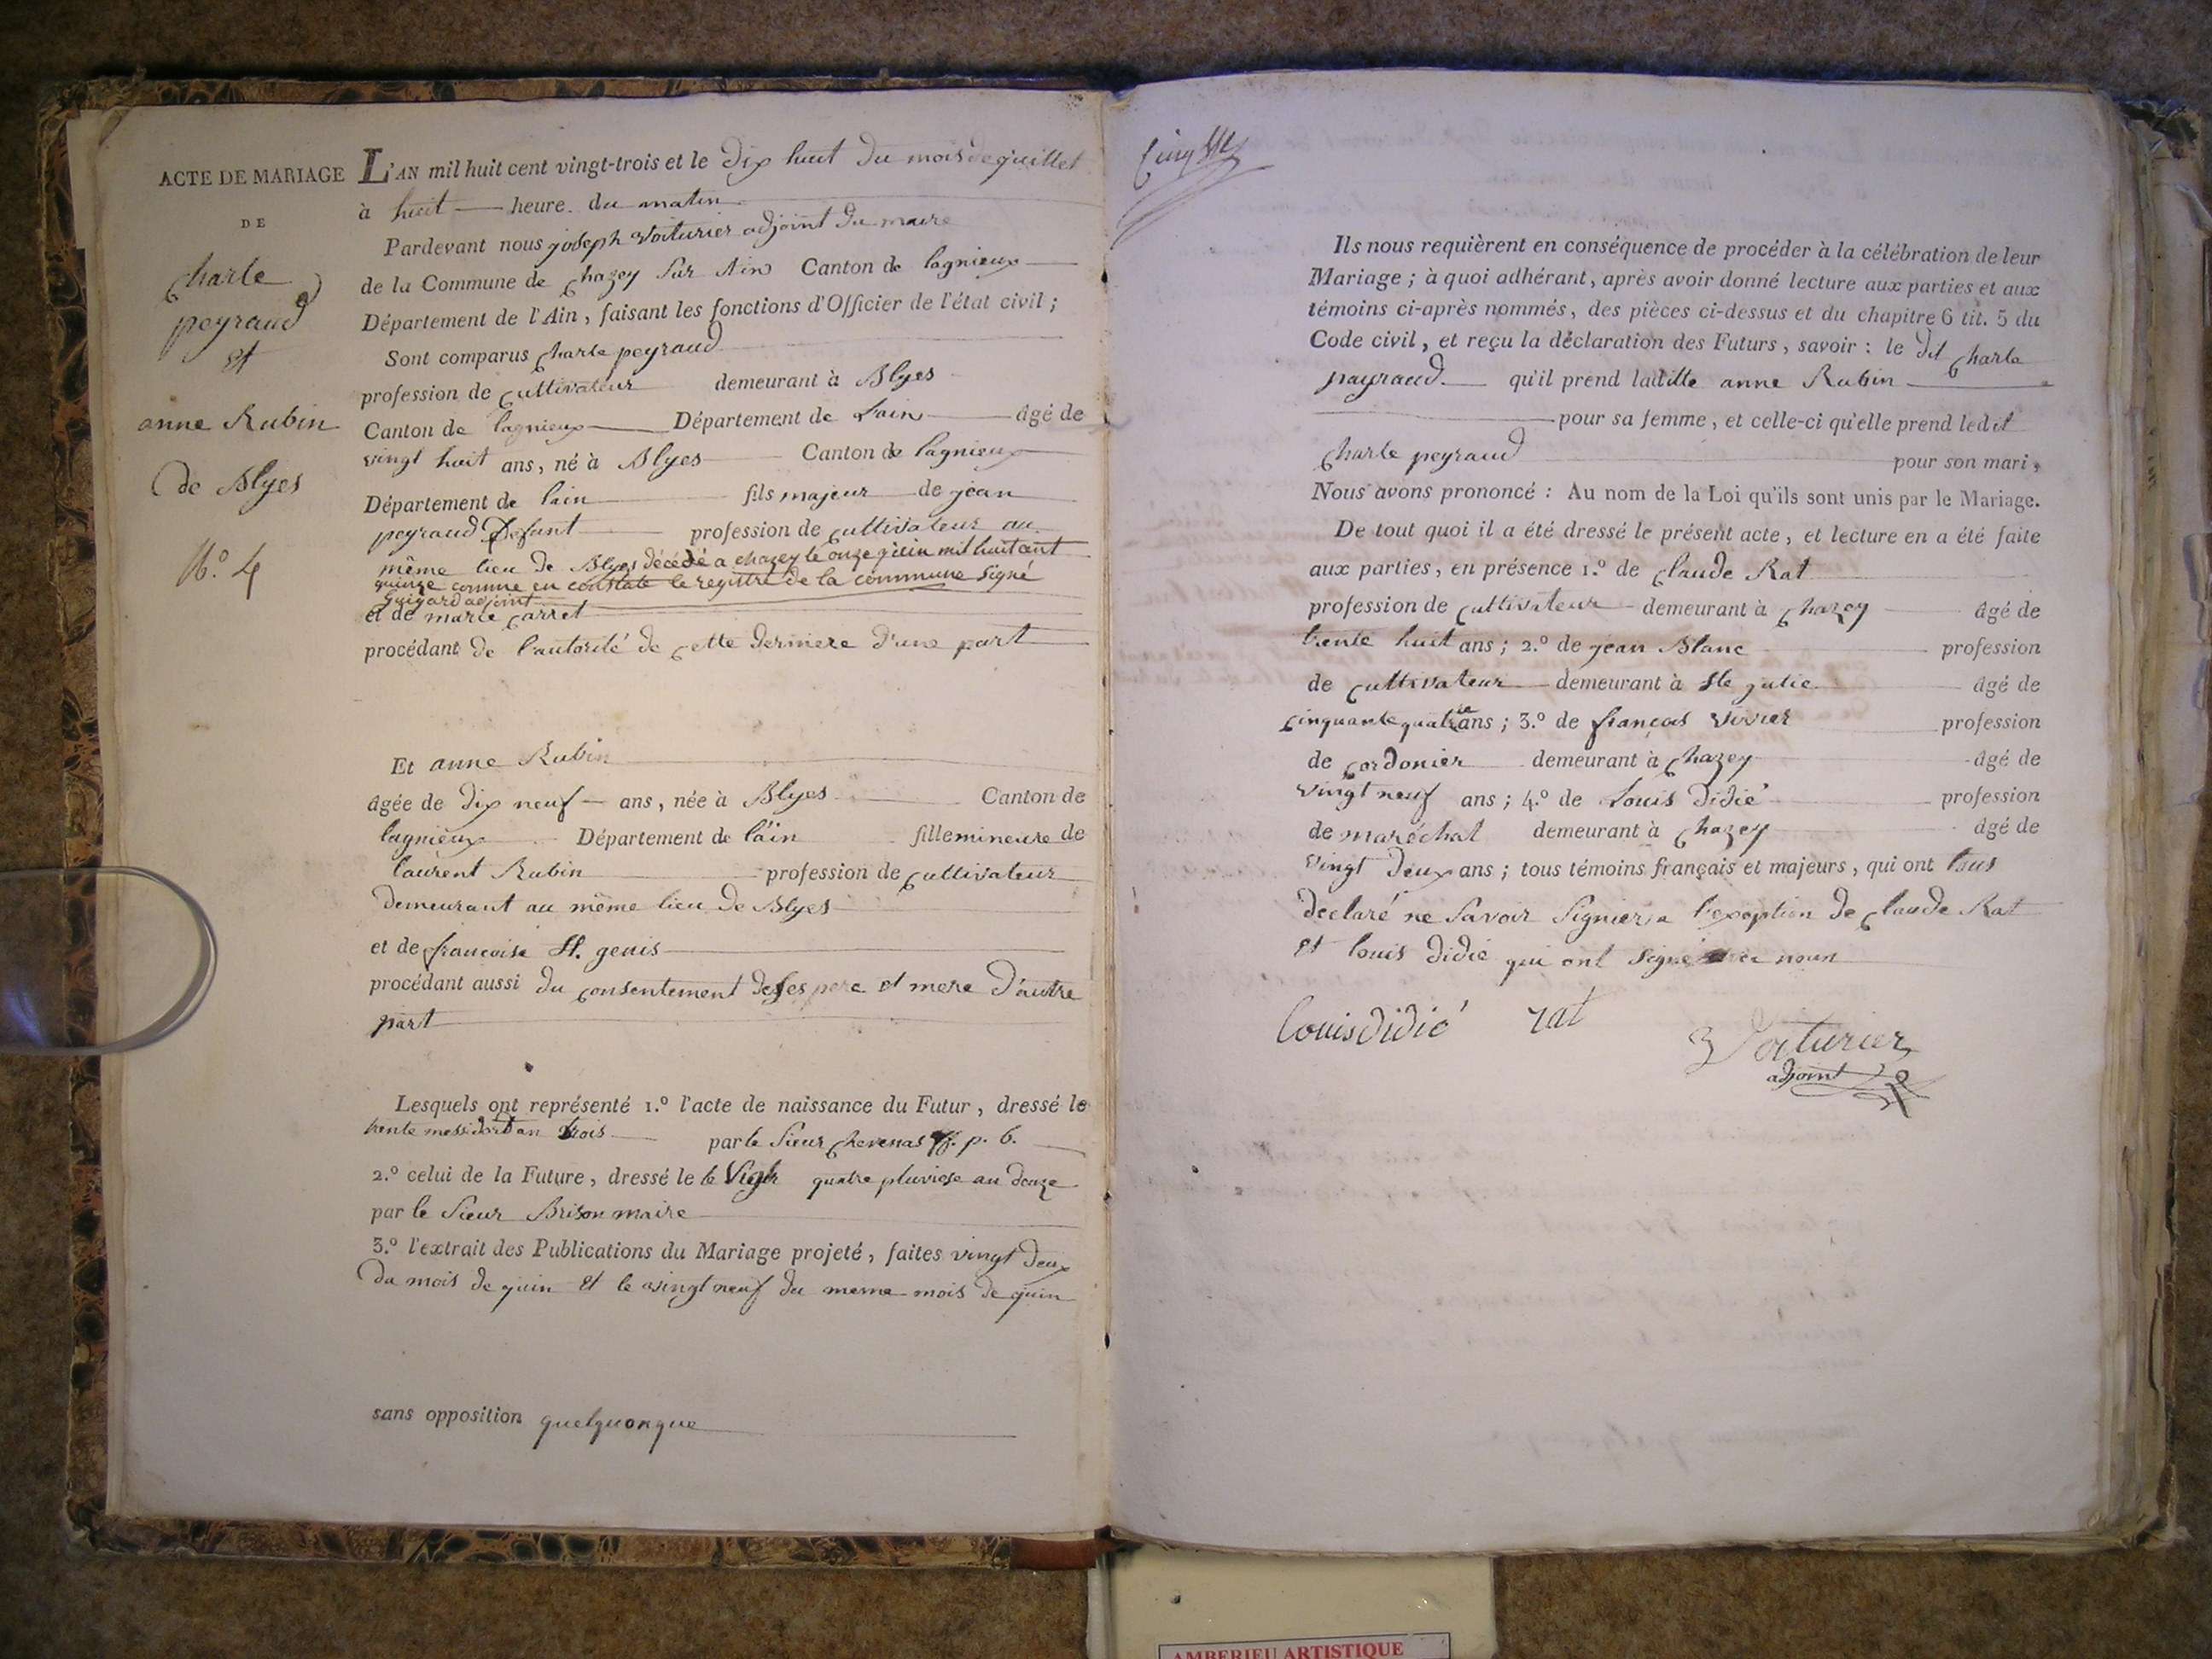 ACTE DE MARIAGE
DE
Charle
peyraud
et
anne Rubin
de Blyes
N.o 4
L'AN mil huit cent vingt-trois et le dix huit du mois de juillet
à huit heure du matin
Pardevant nous joseph Voiturier adjoint du maire
de la Commune de Chazey Sur Ain Canton de lagnieux
Département de l'Ain, faisant les fonctions d'Officier de l'état civil;
Sont comparus Charle peyraud
profession de Cultivateur demeurant à Blyes
Canton de lagnieux Département de Lain âgé de
vingt huit ans, né à Blyes Canton de lagnieux
Département de lain fils majeur de jean
peyraud Defunt profession de Cultivateur au
même lieu de Blyes décédé a chazey le onze juin mil huit cent
quinze comme en constate le registre de la commune Signé
Guigard adjoint
et de marie Carret
procédant de l'autorité de Cette derniere d'une part
Et anne Rubin
âgée de dix neuf ans, née à Blyes Canton de
lagnieux Département de lain fille mineure de
laurent Rubin profession de Cultivateur
demeurant au même lieu de Blyes
et de francoise St. genis
procédant aussi du Consentement de Ses pere et mere D'autre
part
Lesquels ont représenté 1.o l'acte de naissance du Futur, dressé le
trente messidort an trois par le Sieur Chevenas p. b.
2.o celui de la Future, dressé le le Vight quatre pluviose an douze
par le Sieur Brison maire
3.o l'extrait des Publications du Mariage projeté, faites vingt deux
du mois de juin et le vingt neuf du meme mois de juin
sans opposition quelquonque
Ils nous requièrent en conséquence de procéder à la célébration de leur
Mariage; à quoi adhérant, après avoir donné lecture aux parties et aux
témoins ci-après nommés, des pièces ci-dessus et du chapitre 6 tit. 5 du
Code civil, et reçu la déclaration des Futurs, savoir: le dit Charle
payraud qu'il prend la ditte anne Rubin
pour sa femme, et celle-ci qu'elle prend le dit
Charle peyraud pour son mari,
Nous avons prononcé: Au nom de la Loi qu'ils sont unis par le Mariage.
De tout quoi il a été dressé le présent acte, et lecture en a été faite
aux parties, en présence 1.o de Claude Rat
profession de Cultivateur demeurant à Chazey âgé de
trente huit ans; 2.o de jean Blanc profession
de Cultivateur demeurant à Ste julie âgé de
Cinquante quatre ans; 3.o de françois Vivier profession
de Cordonier demeurant à Chazey âgé de
vingt neuf ans; 4.o de Louis Didié profession
de maréchal demeurant à Chazey âgé de
vingt deux ans; tous témoins français et majeurs, qui ont tous
declaré ne Savoir Signier a l'exception de Claude Rat
et louis didié qui ont Signé
Louis didié rat
Voiturier
adjoint
AMBERIEU ARTISTIQUE